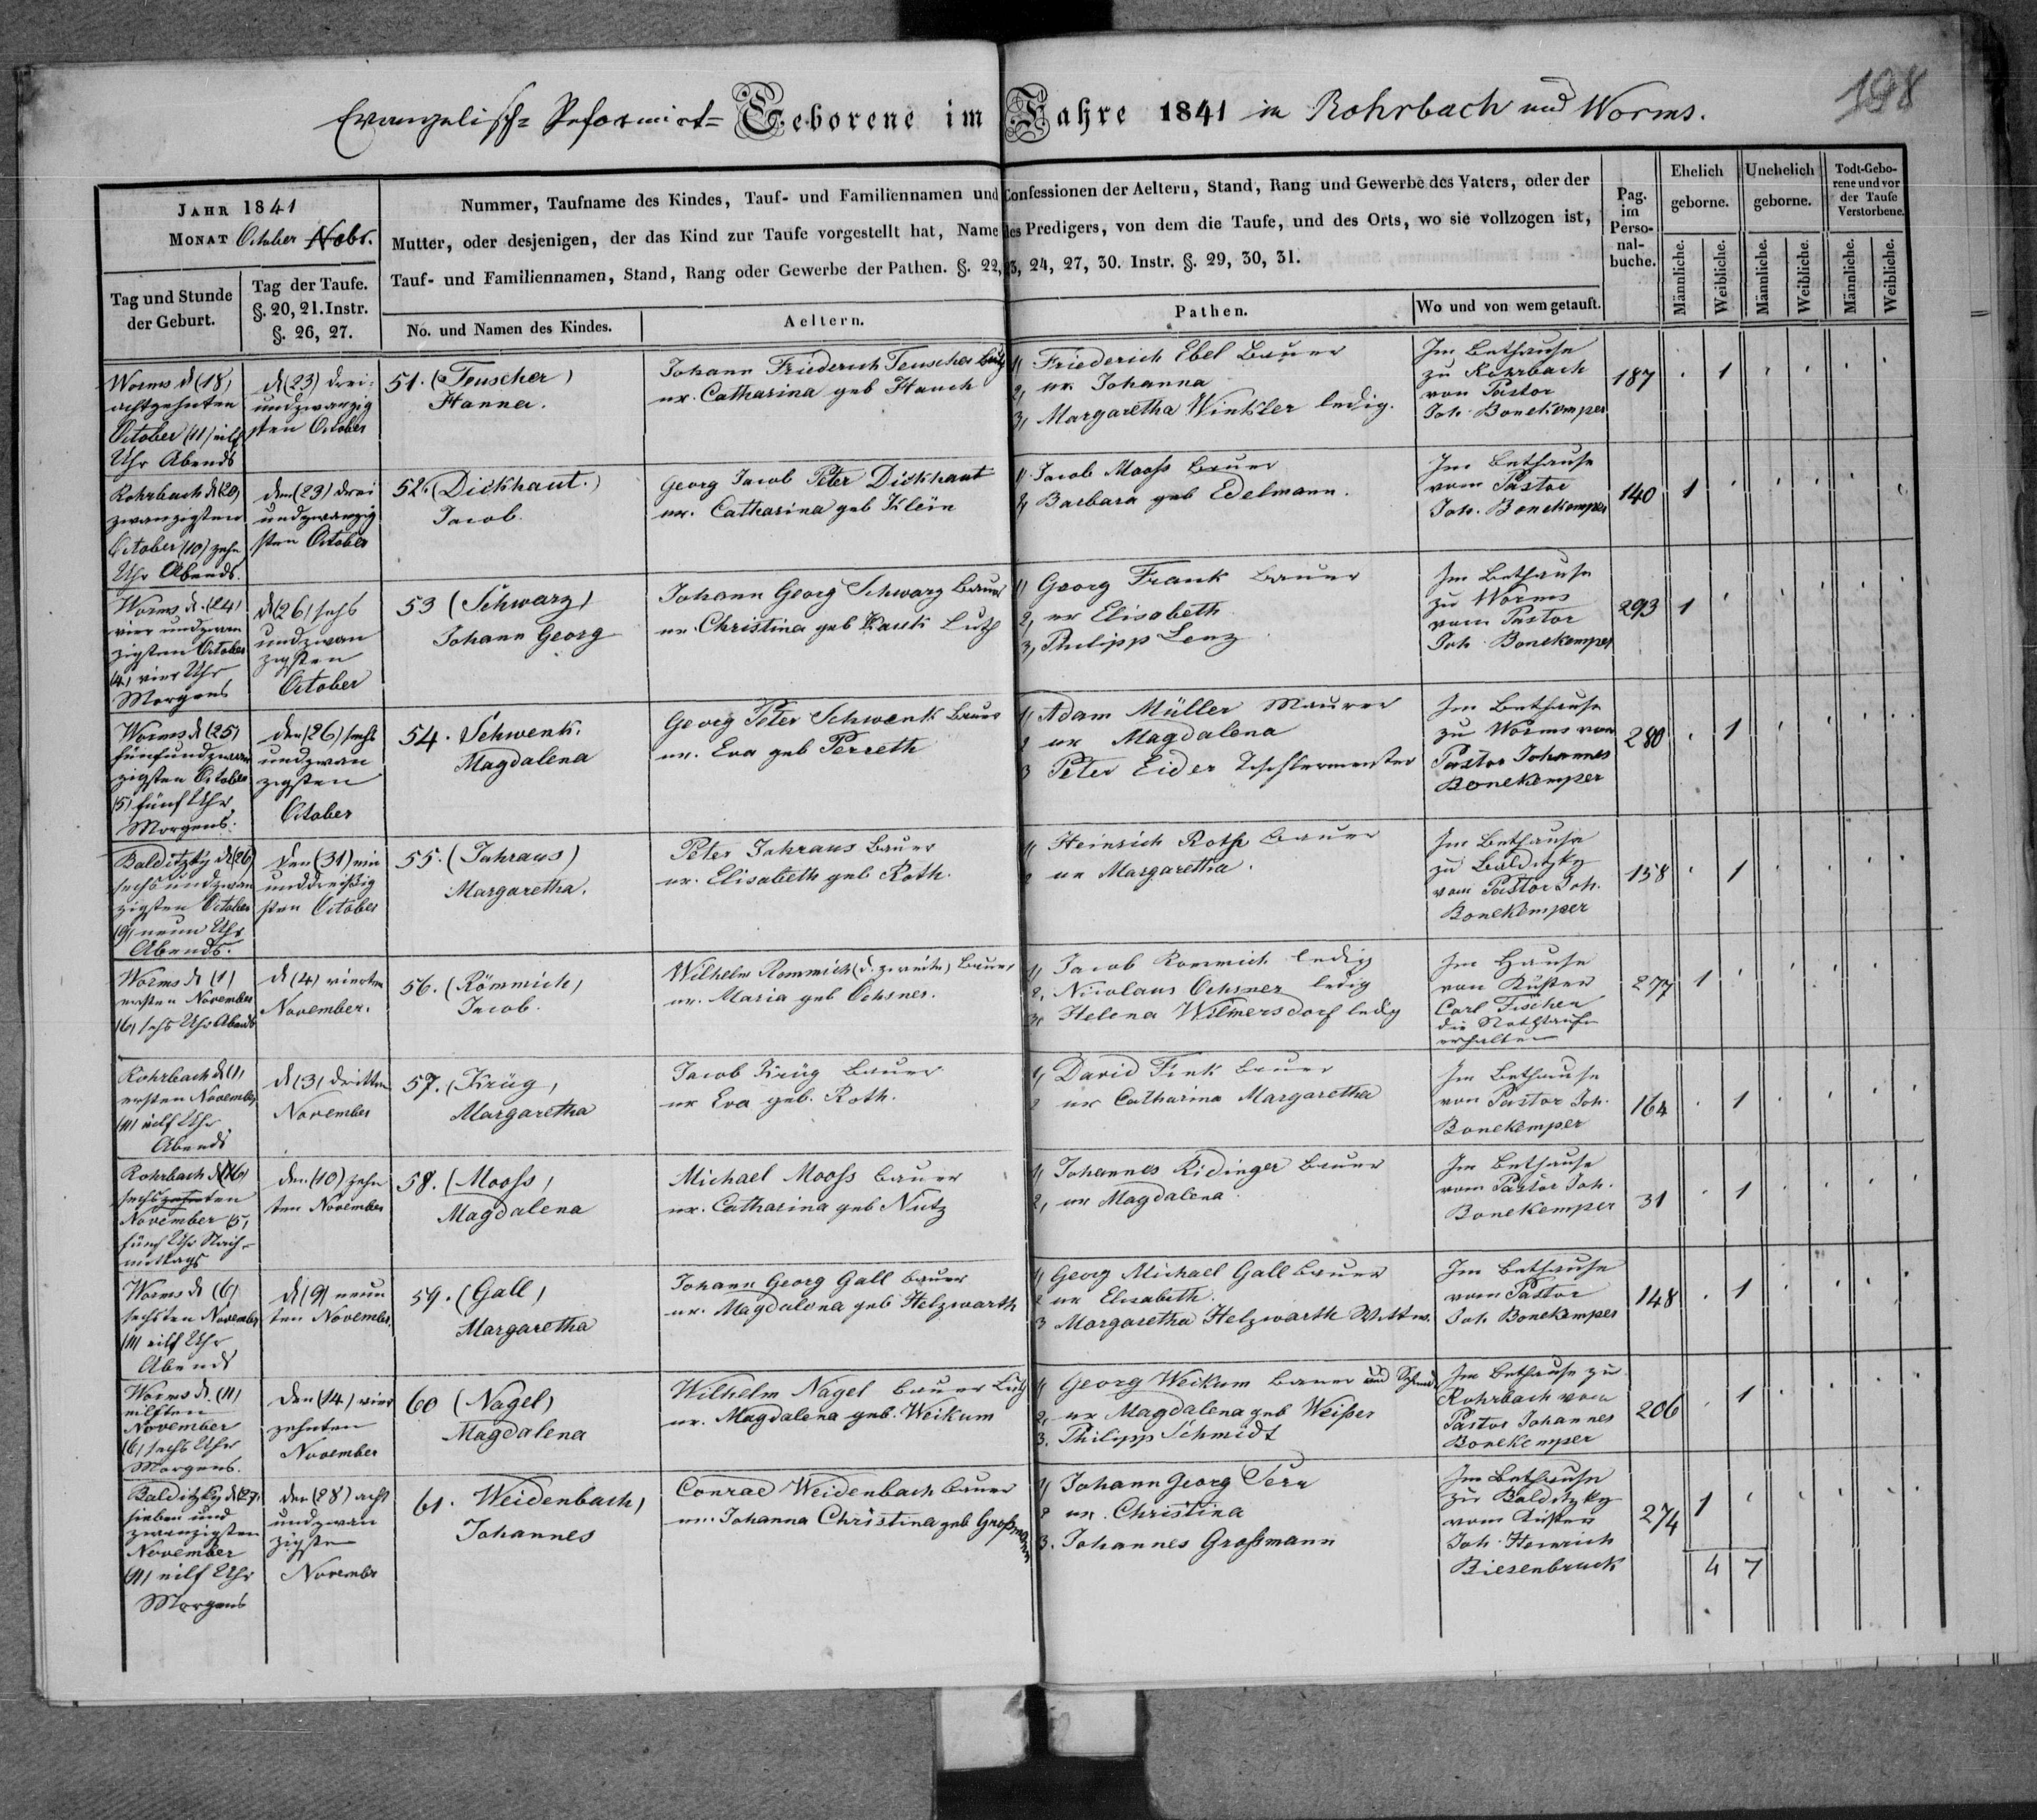 198
Evangelisch= Reformirt= Geborene im Jahre 1841 in Rohrbach und Worms.
JAHR 1841
MONAT October Nobr.
Tag und Stunde
der Geburt.
Tag der Taufe.
§. 20, 21. Instr.
§. 26, 27.
Nummer, Taufname des Kindes, Tauf- und Familiennamen und Confessionen der Aeltern, Stand, Rang und Gewerbe des Vaters, oder der
Mutter, oder desjenigen, der das Kind zur Taufe vorgestellt hat, Name des Predigers, von dem die Taufe, und des Orts, wo sie vollzogen ist,
Tauf- und Familiennamen, Stand, Rang oder Gewerbe der Pathen. §. 22, 23, 24, 27, 30. Instr. §. 29, 30, 31.
No. und Namen des Kindes.
Aeltern.
Pathen.
Wo und von wem getauft.
Pag.
im
Perso-
nal-
buche.
Ehelich
geborne.
Unehelich
geborne.
Todt-Gebo-
rene und vor
der Taufe
Verstorbene.
Männliche.
Weibliche.
Männliche.
Weibliche.
Männliche.
Weibliche.
Worms d (18)
achtzehnten
October (11) eilf
Uhr Abends
d (23) drei=
undzwanzig
sten October
51. (Teuscher)
Hanna.
Johann Friederich Teuscher
ux. Catharina geb Hauch
1, Friederich Ebel Bauer
2, ux. Johanna
3, Margaretha Winkler ledig.
Im Bethause
zu Rohrbach
von Pastor
Joh. Bonekemper
187
1
Rohrbach d (20)
zwanzigsten
October (10) zehn
Uhr Abends.
den (23) drei
undzwanzig
sten October
52. (Dickhaut.)
Jacob.
Georg Jacob Peter Dickhaut
ux. Catharina geb Klein
1, Jacob Mooss Bauer
2, Barbara geb Edelmann.
Im Bethause
vom Pastor
Joh. Bonekemper
140
1
Worms d. (24)
vier undzwan
zigsten October
(4) vier Uhr
Morgens
d (26) sechs
undzwan
zigsten
October
53 (Schwarz)
Johann Georg
Johann Georg Schwarz Bauer
ux. Christina geb Rauh Luth
1, Georg Frank Bauer
2, ux Elisabeth
3, Philipp Lenz
Im Bethause
zu Worms
vom Pastor
Joh. Bonekemper
293
1
Worms d (25)
fünfundzwan
zigsten October
(5) fünf Uhr
Morgens.
den (26) sechs
undzwan
zigsten
October
54. Schwenk.
Magdalena
Georg Peter Schwenk Bauer
ux. Eva geb Perreth
1, Adam Müller Maurer
2 ux Magdalena
3 Peter Eider Tischlermeister
Im Bethause
zu Worms von
Pastor Johannes
Bonekemper
280
1
Balditzky d (26)
sechsundzwan
zigsten October
(9) neun Uhr
Abends.
den (31) ein
unddreißig
sten October
55. (Jahraus)
Margaretha.
Peter Jahraus Bauer
ux. Elisabeth geb Roth.
1, Heinrich Roth Bauer
2 ux Margaretha.
Im Bethause
zu Balditzky
vom Pastor Joh.
Bonekemper
158
1
Worms d (1)
ersten November
(6) sechs Uhr Abends
d (4) vierten
November.
56. (Römmich)
Jacob.
Wilhelm Rommich (d. zweite) Bauer
ux. Maria geb Ochsner.
1, Jacob Rommich ledig
2, Nicolaus Ochsner ledig
3, Helena Wilmersdorf ledig
Im Hause
von Küster
Carl Fischer
die Nothtaufe
erhalten
277
1
Rohrbach d (1)
ersten November
(11) eilf Uhr
Abends
d (3) dritten
November
57. (Krüg)
Margaretha
Jacob Krüg Bauer
ux Eva geb. Roth.
1, David Fink Bauer
2 ux Catharina Margaretha
Im Bethause
von Pastor Joh.
Bonekemper
164
1
Rohrbach d (6)
sechszehnten
November (5)
fünf Uhr Nach=
mittags
den (10) zehn
ten November
58. (Mooss)
Magdalena
Michael Mooss Bauer
ux. Catharina geb Nutz
1, Johannes Ridinger Bauer
2, ux Magdalena
Im Bethause
vom Pastor Joh.
Bonekemper
31
1
Worms d (6)
sechsten November
(11) eilf Uhr
Abends
d (9) neun
ten November.
59. (Gall)
Margaretha
Johann Georg Gall Bauer
ux. Magdalena geb Helzwarth
1, Georg Michael Gall Bauer
2 ux Elisabeth.
3 Margaretha Helzwarth Wittw.
Im Bethause
vom Pastor
Joh Bonekemper
148
1
Worms d. (11)
eilften
November
(6) sechs Uhr
Morgens.
den (14) vier
zehnten
November
60 (Nagel)
Magdalena
Wilhelm Nagel Bauer Luth
ux. Magdalena geb. Weikum
1, Georg Weikum Bauer und
2, ux Magdalena geb Weißer
3. Philipp Schmidt
Im Bethause zu
Rohrbach vom
Pastor Johannes
Bonekemper
206
1
Balditzky d (27)
sieben und
zwanzigsten
November
(11) eilf Uhr
Morgens
den (28) acht
undzwan
zigsten
Novembr
61. Weidenbach)
Johannes
Conrad Weidenbach Bauer
ux. Johanna Christina geb Großmann
1, Johann Georg
2 ux. Christina
3. Johannes Großmann
Im Bethause
zu Balditzky
vom Küster
Joh. Heinrich
Biesenbruck
274
1
4 7